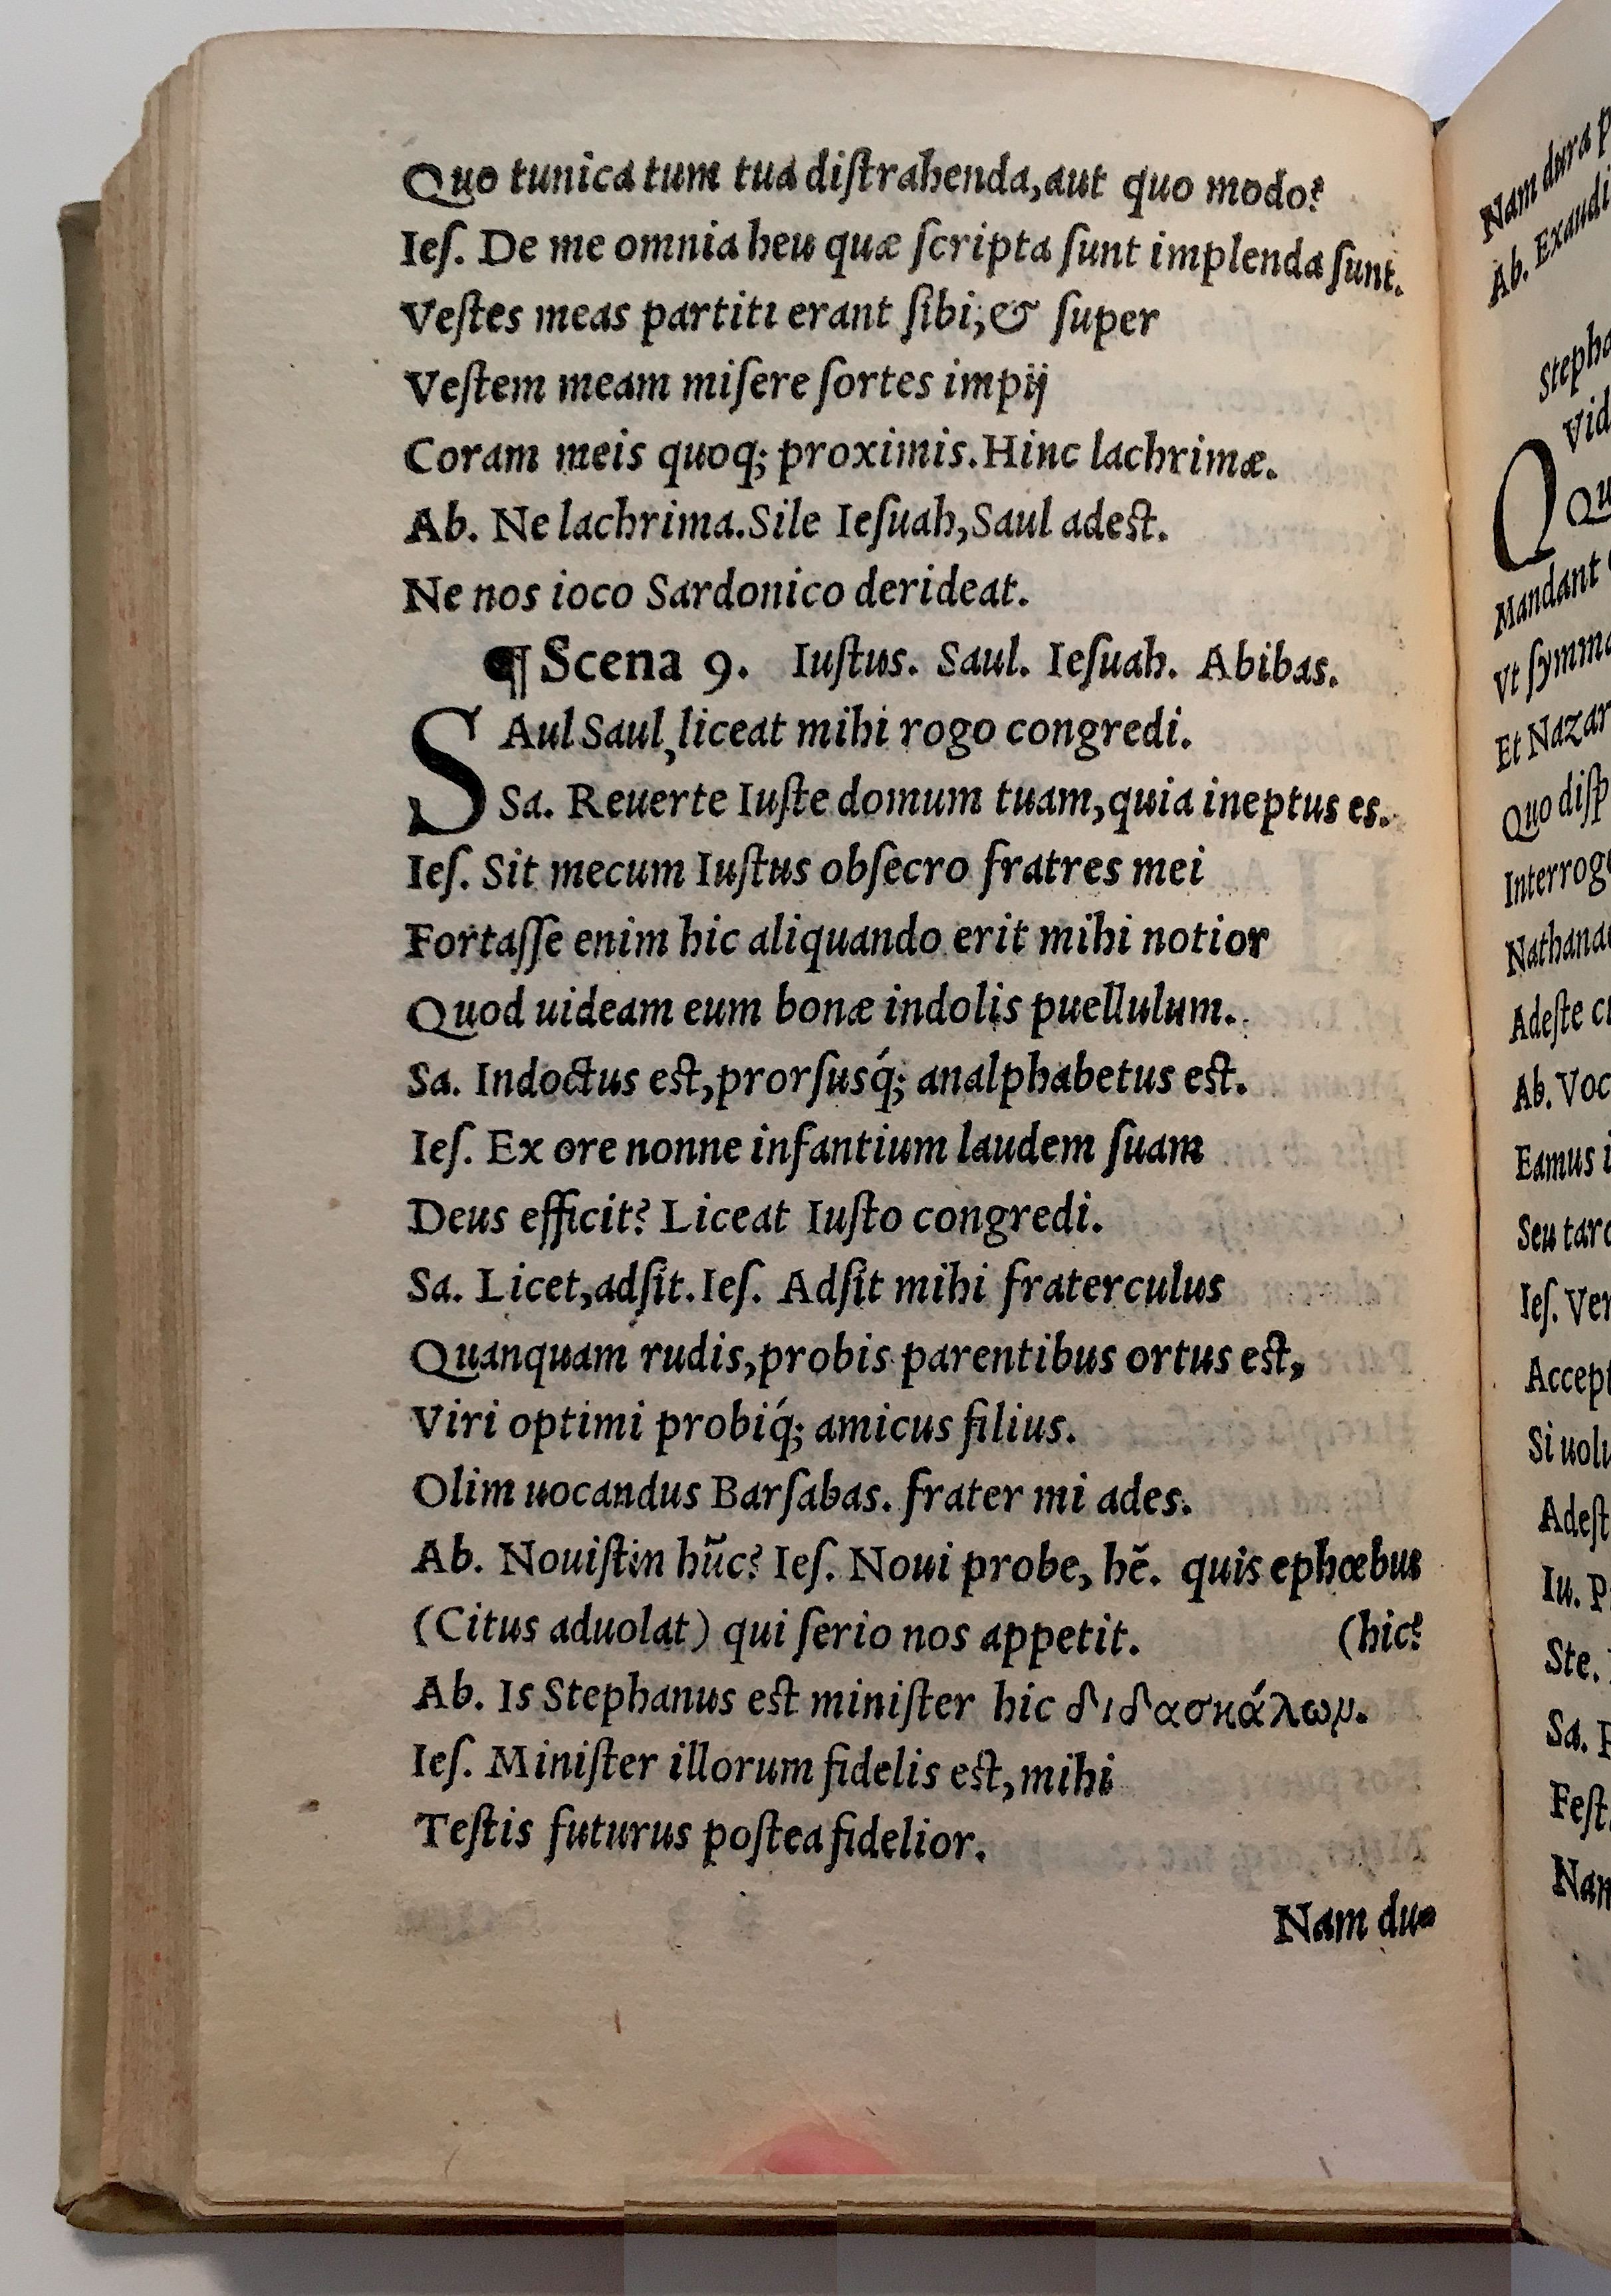 Quo tunica tum tua diſtrahenda, aut quo modo?
Ieſ. De me omnia heu quæ ſcripta ſunt implenda ſunt.
Veſtes meas partiti erant ſibi; & ſuper
Veſtem meam miſere ſortes impij
Coram meis quoq; proximis. Hinc lachrimæ.
Ab. Ne lachrima. Sile Ieſuah, Saul adeſt.
Ne nos ioco Sardonico derideat.
¶ Scena 9. Iuſtus. Saul. Ieſuah. Abibas.
SAul Saul, liceat mihi rogo congredi.
Sa. Reuerte Iuſte domum tuam, quia ineptus es.
Ieſ. Sit mecum Iuſtus obſecro fratres mei
Fortaſſe enim hic aliquando erit mihi notior
Quod uideam eum bonæ indolis puellulum.
Sa. Indoctus eſt, prorſusq́; analphabetus eſt.
Ieſ. Ex ore nonne infantium laudem ſuam
Deus efficit? Liceat Iuſto congredi.
Sa. Licet, adſit. Ieſ. Adſit mihi fraterculus
Quanquam rudis, probis parentibus ortus eſt,
Viri optimi probiq́; amicus filius.
Olim uocandus Barſabas. frater mi ades.
Ab. Nouiſtin hũc? Ieſ. Noui probe, hẽ. quis ephœbus
(Citus aduolat) qui ſerio nos appetit. (hic?
Ab. Is Stephanus eſt miniſter hic διδασκάλωμ.
Ieſ. Miniſter illorum fidelis eſt, mihi
Teſtis futurus poſtea fidelior.
Nam du-
Nam dura
Ab. Exaudi
Mandant
Et Nazar
Quo diſp
Interrog
Nathana
Adeſte
Ab. Voc
Eamus
Seu tar
Ieſ. Ver
Accep
Si uol
Adeſt
Iu. P
Ste.
Sa.
Feſt
Nam